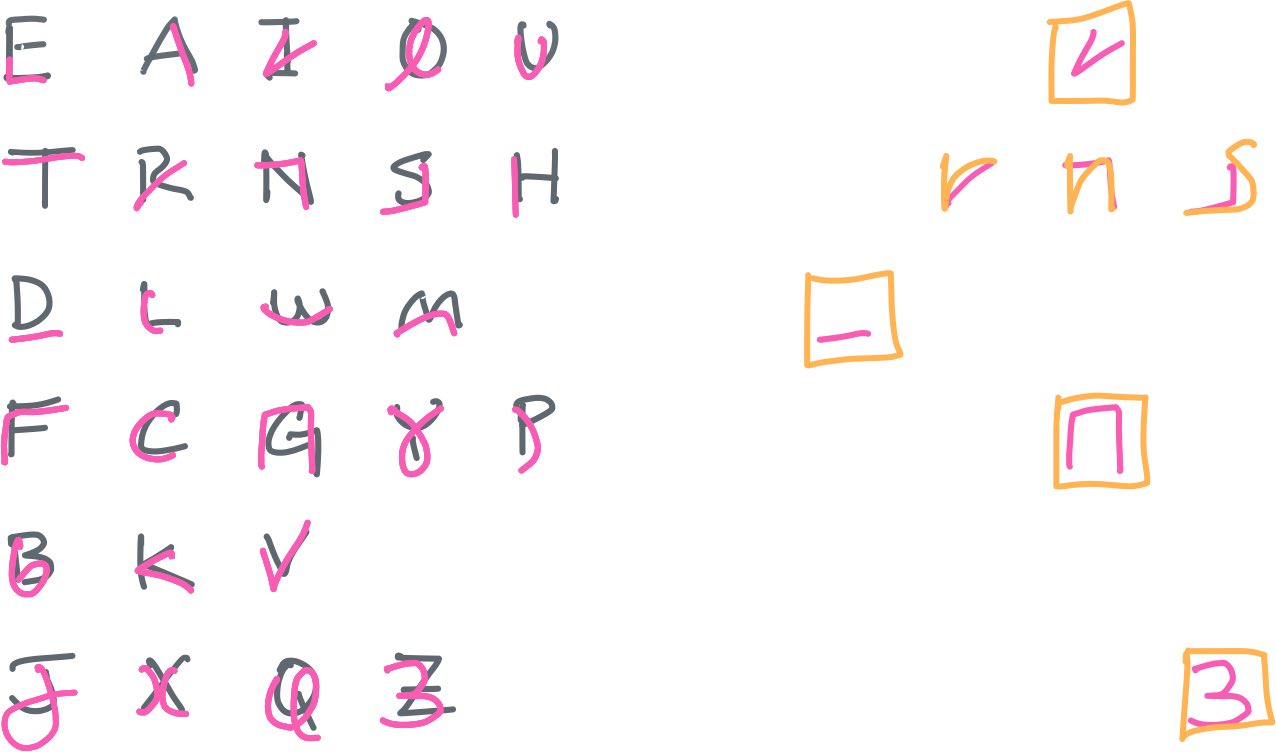 E A I Ø U
T R N S H r n s
D L W M
F C G Y P
B K V
J X Q Z